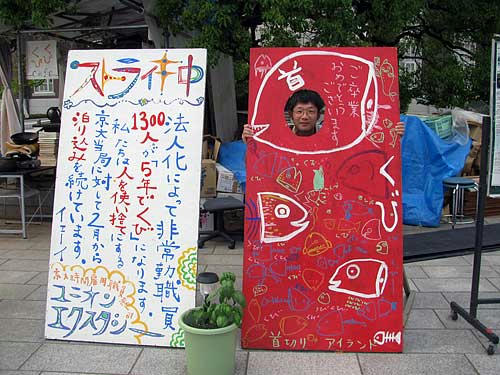 ストライキ中
法人化によって非常勤職員
1300人が5年で「くび」になります。
私たちは人を使い捨てにする
京大当局に対して2月から
泊り込みを続けています。
イエーイ
ユニオン
エクスタシー
首
ご卒業
おめでとう!?
ございます
くび
首切りアイランド
くびくび
Cafe